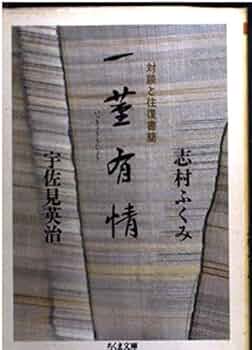 対談と往復書簡
一茎有情
いっけいうじょう
志村ふくみ
宇佐見英治
ちくま文庫